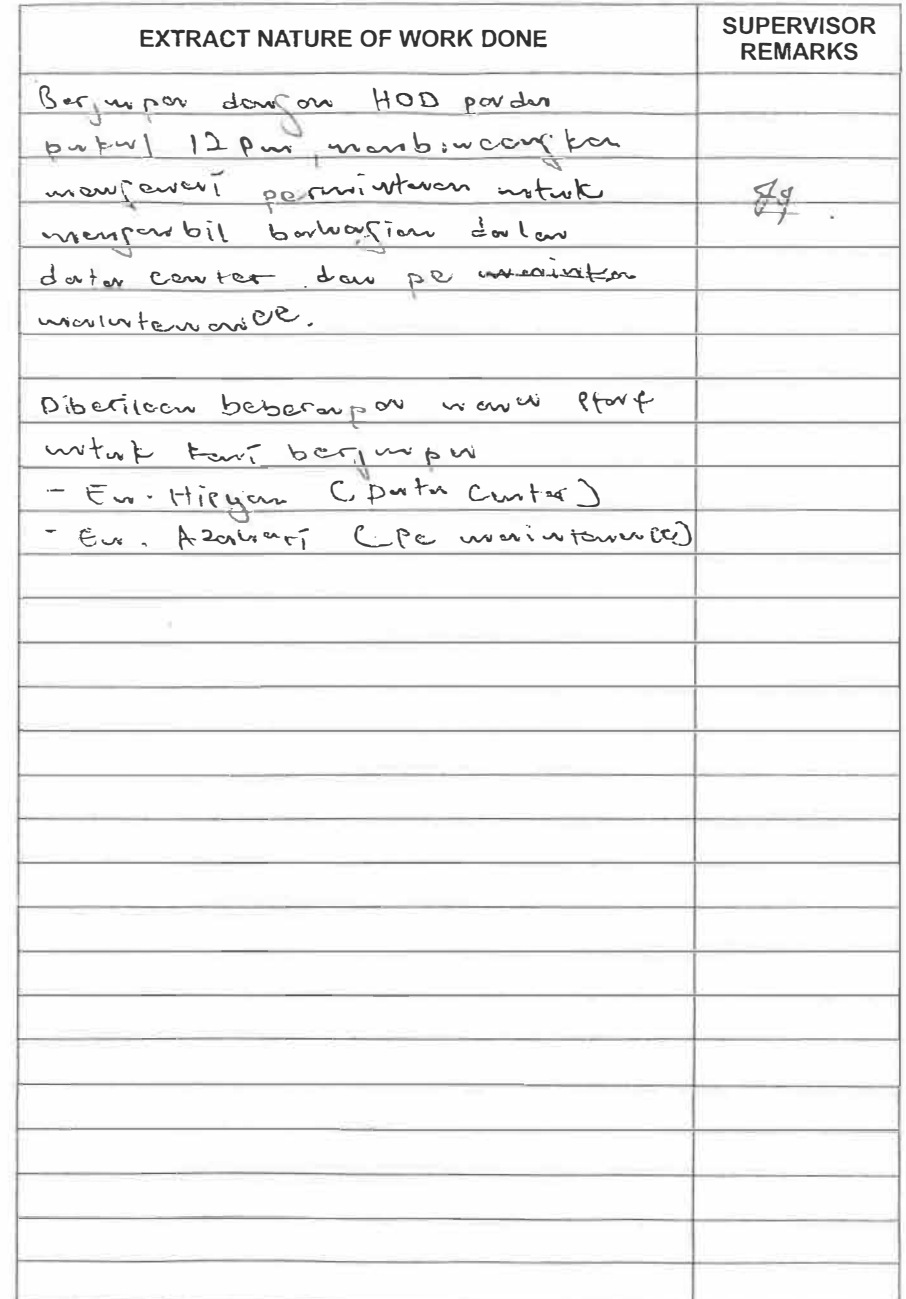 EXTRACT NATURE OF WORK DONE
SUPERVISOR
REMARKS
Berjumpa dengan HOD pada
pukul 12 pm, membincangkan
mengenai permintaan untuk
mengambil bahagian dalam
data center dan pc
maintenance.
Diberikan beberapa nama staf
untuk kami berjumpa
- En. Hisyam (Data Center)
- En. Azahari (Pc maintenance)